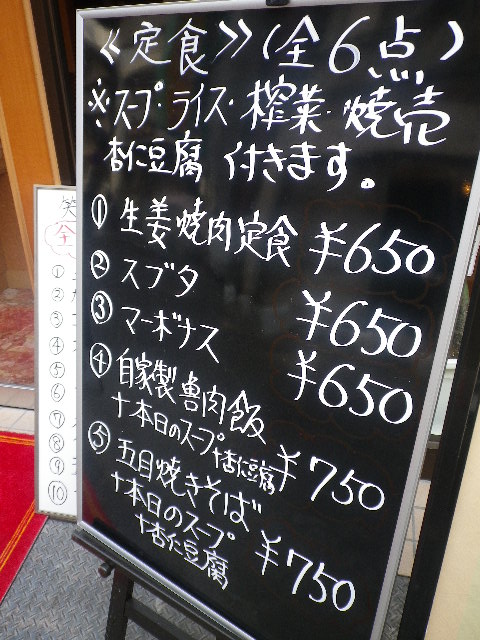 ≪定食≫(全6点)
※スープ・ライス・搾菜・焼売
杏仁豆腐 付きます。
① 生姜焼肉定食 ¥650
② スブタ ¥650
③ マーボナス ¥650
④ 自家製魯肉飯
+本日のスープ+杏仁豆腐 ¥750
⑤ 五目焼きそば
+本日のスープ
+杏仁豆腐 ¥750
笑
全
①
②
③
④
⑤
⑥
⑦
⑧
⑨
⑩